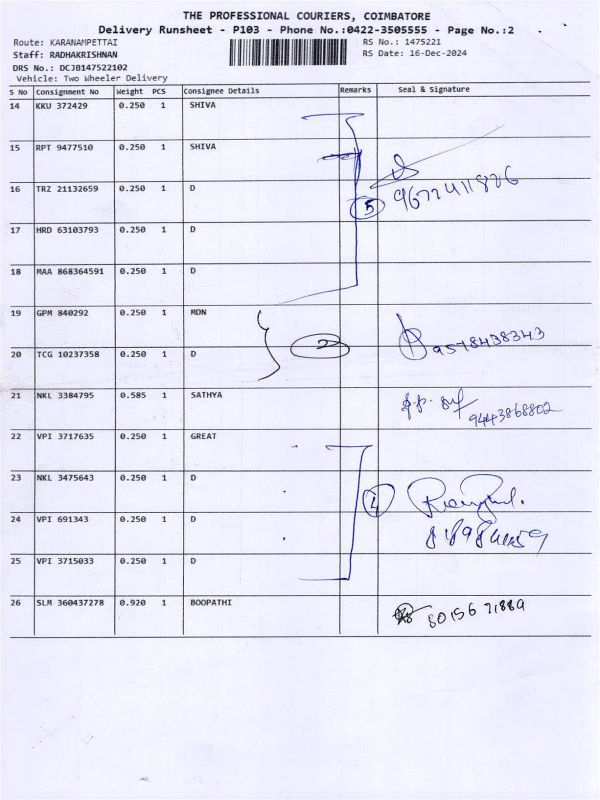 THE PROFESSIONAL COURIERS, COIMBATORE
Delivery Runsheet - P103 - Phone No.:0422-3505555 - Page No.:2
Route: KARANAMPETTAI RS No.: 1475221
Staff: RADHAKRISHNAN RS Date: 16-Dec-2024
DRS No.: DCJB147522102
Vehicle: Two Wheeler Delivery
S No Consignment No Weight PCS Consignee Details Remarks Seal & Signature
14 KKU 372429 0.250 1 SHIVA
15 RPT 9477510 0.250 1 SHIVA
16 TRZ 21132659 0.250 1 D
5 9672411826
17 HRD 63103793 0.250 1 D
18 MAA 868364591 0.250 1 D
19 GPM 840292 0.250 1 MDN
2 9578438343
20 TCG 10237358 0.250 1 D
21 NKL 3384795 0.585 1 SATHYA
9443868802
22 VPI 3717635 0.250 1 GREAT
23 NKL 3475643 0.250 1 D
4
24 VPI 691343 0.250 1 D
25 VPI 3715033 0.250 1 D
26 SLM 360437278 0.920 1 BOOPATHI
8015671889